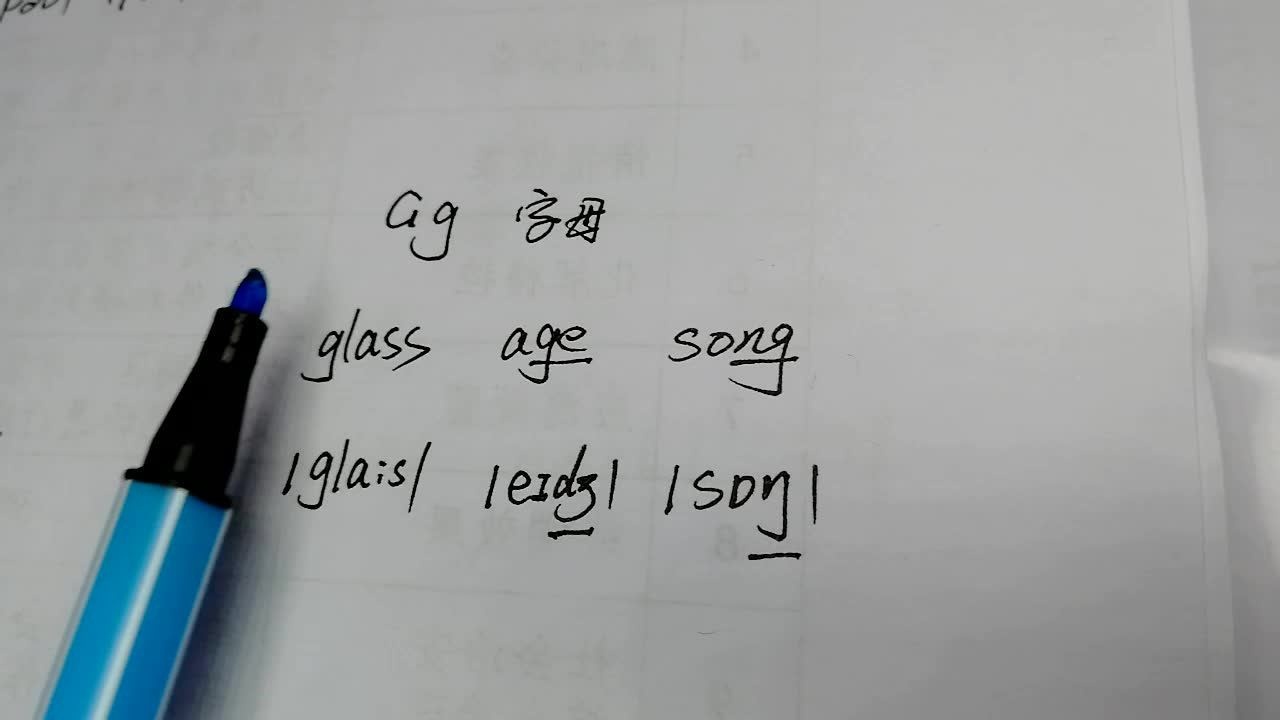 Gg 字母
glass age song
/glɑ:s/ /eɪdʒ/ /sɒŋ/